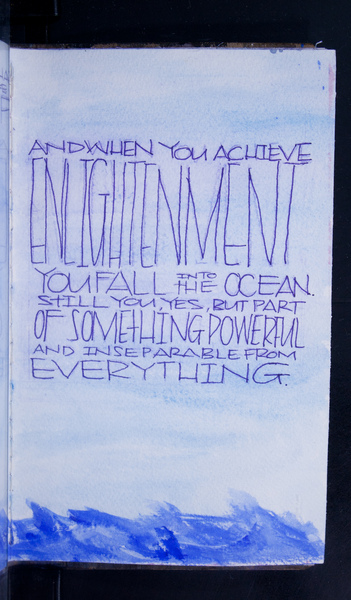 AND WHEN YOU ACHIEVE
ENLIGHTENMENT
YOU FALL INTO THE OCEAN.
STILL YOU, YES, BUT PART
OF SOMETHING POWERFUL
AND INSEPARABLE FROM
EVERYTHING.